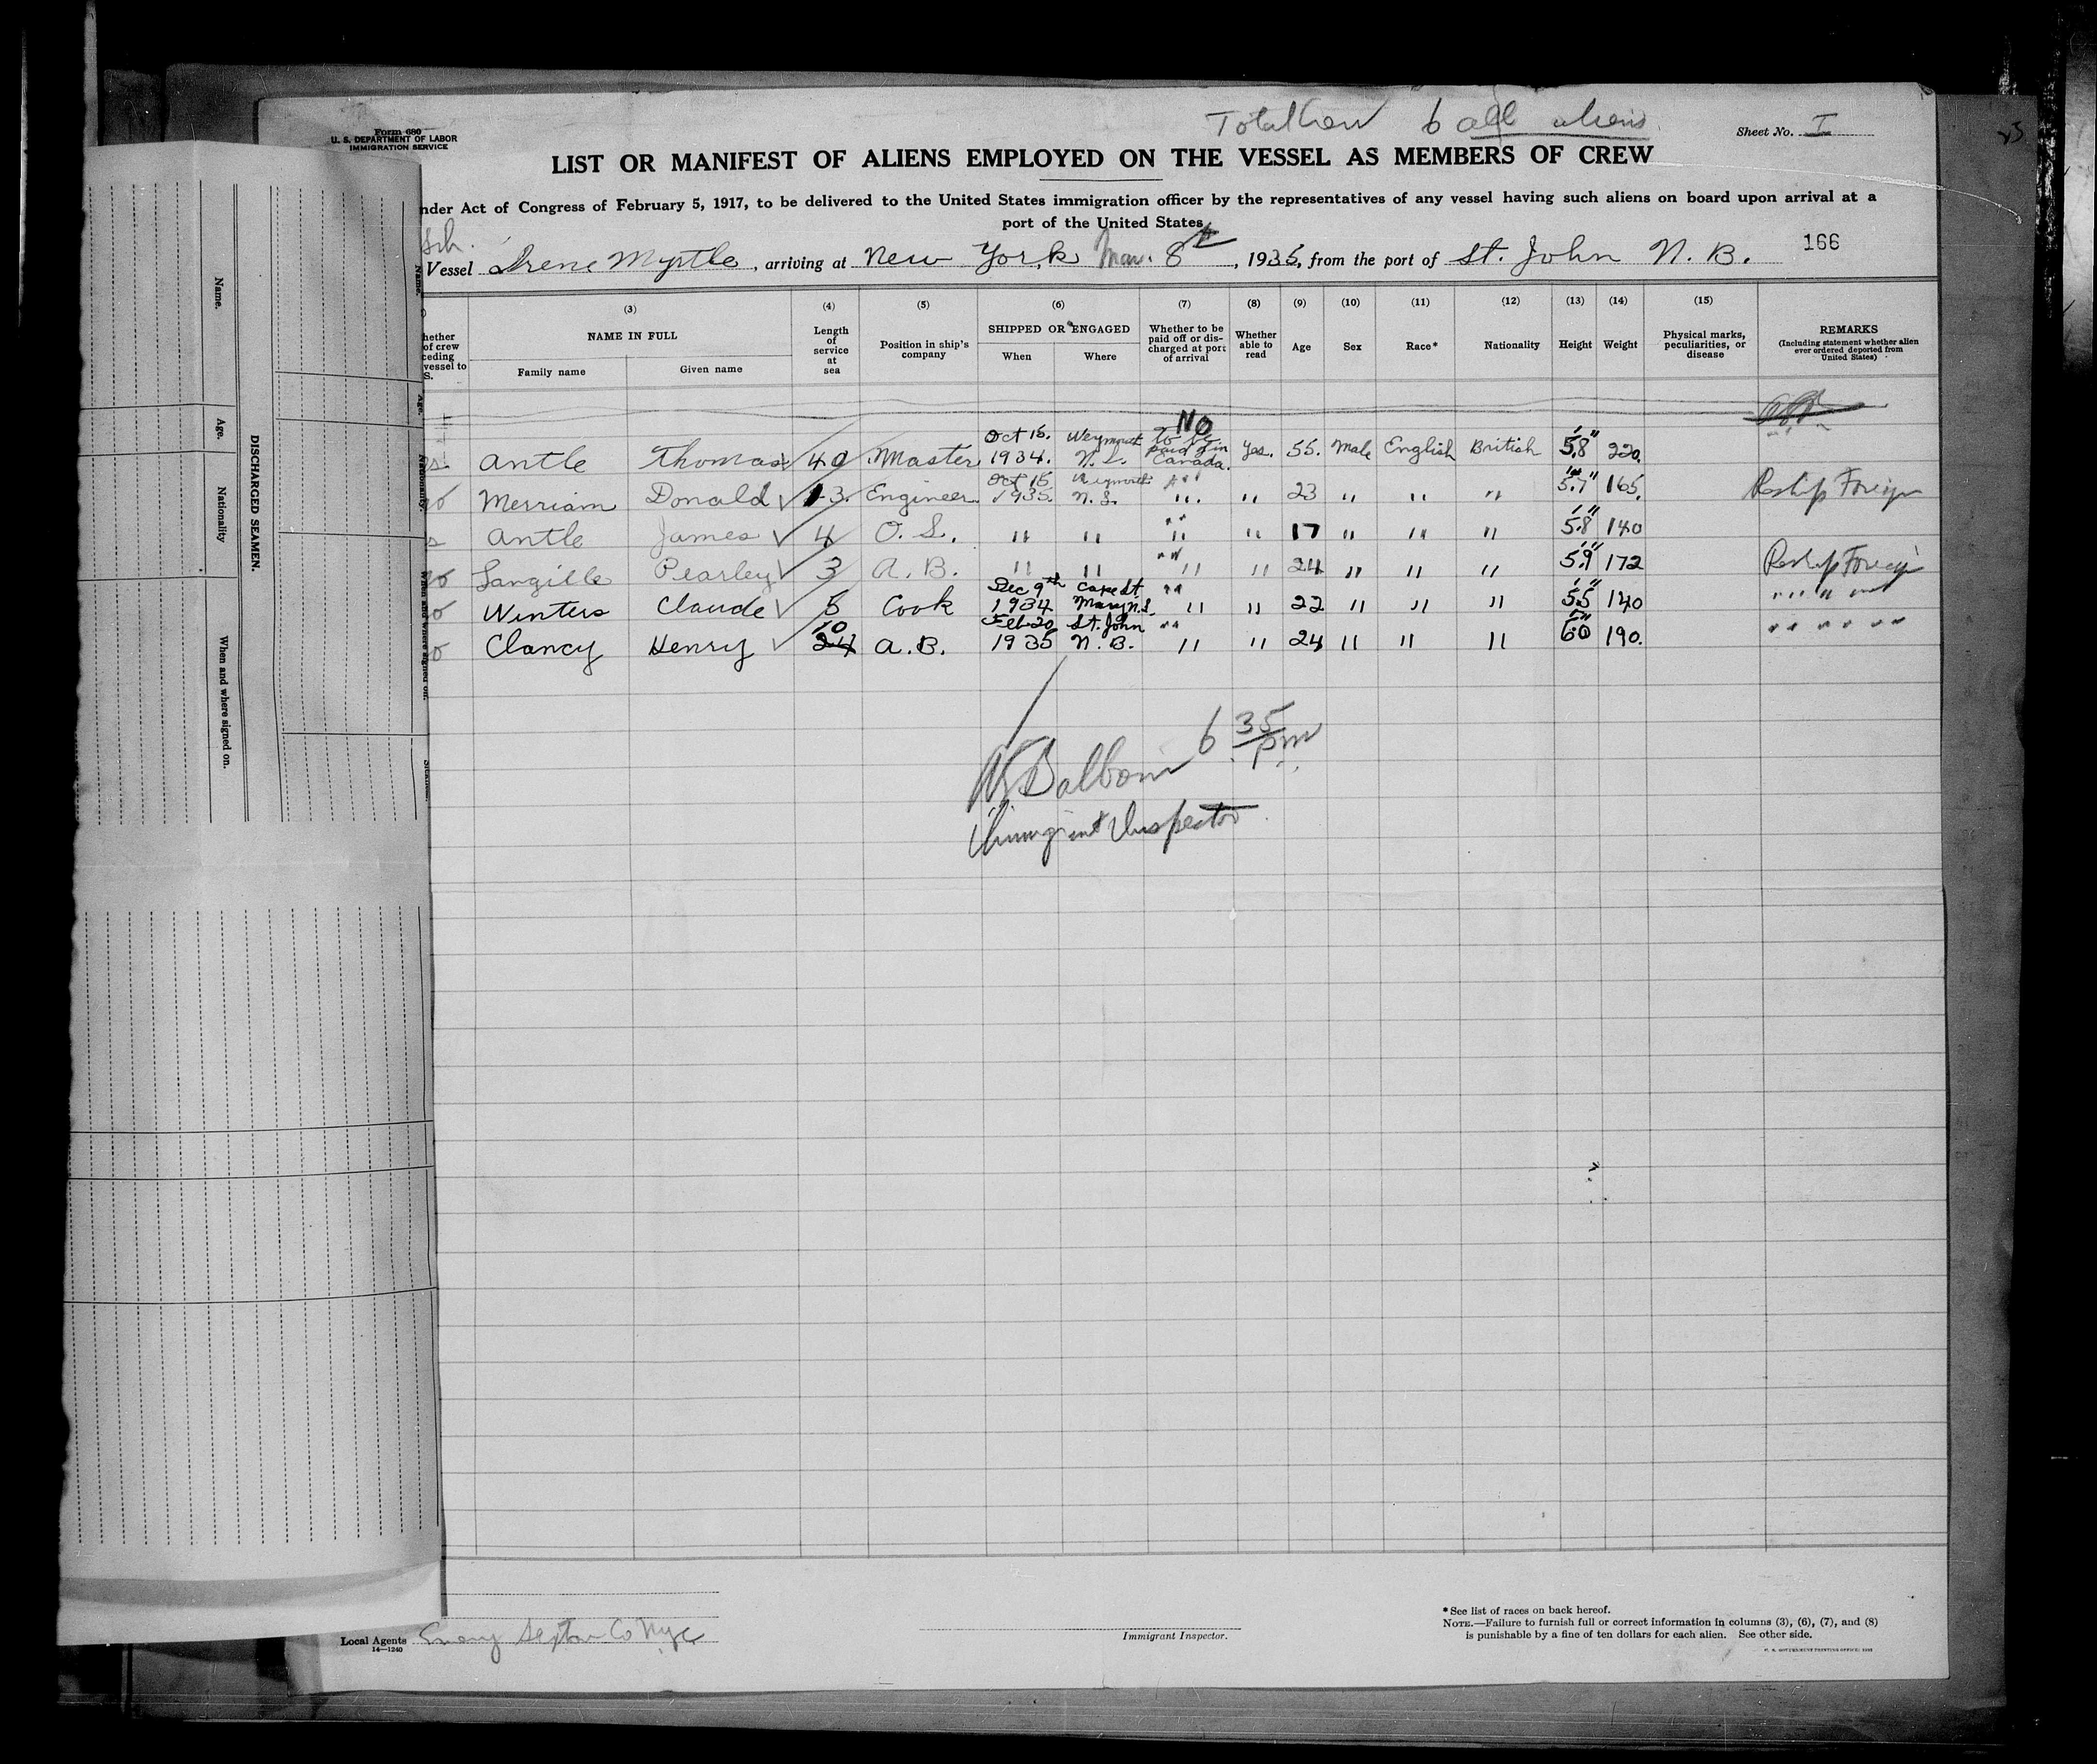 Total Crew 6 all aliens
Form 680
U. S. DEPARTMENT OF LABOR
IMMIGRATION SERVICE
Sheet No. I
LIST OR MANIFEST OF ALIENS EMPLOYED ON THE VESSEL AS MEMBERS OF CREW
nder Act of Congress of February 5, 1917, to be delivered to the United States immigration officer by the representatives of any vessel having such aliens on board upon arrival at a
port of the United States
Sch.
Vessel Irene Myrtle, arriving at New York Mar. 8th, 1935, from the port of St. John N. B.
166
(3) (4) (5) (6) (7) (8) (9) (10) (11) (12) (13) (14) (15)
hether of crew ceding vessel to S.
NAME IN FULL
Family name Given name
Length of service at sea
Position in ship's company
SHIPPED OR ENGAGED
When Where
Whether to be paid off or discharged at port of arrival
Whether able to read
Age
Sex
Race*
Nationality
Height
Weight
Physical marks, peculiarities, or disease
REMARKS
(Including statement whether alien ever ordered deported from United States)
Antle Thomas 40 Master Oct 15. 1934. Weymouth N.S. No to be paid off in Canada. Yes. 55. Male English British 5'8" 220.
Merriam Donald 13. Engineer Oct 15 1935. Weymouth N.S. " " 23 " " " 5'7" 165. Reship Foreign
Antle James 4 O. S. " " " " 17 " " " 5'8" 140
Langille Pearley 3 A. B. " " " " 24 " " " 5'9" 172 Reship Foreign
Winters Claude 5 Cook Dec 9th 1934 Cape St. Mary N.S. " " 22 " " " 5'5" 140 " " "
Clancy Henry 10 24 A. B. Feb. 20 1935 St. John N. B. " " 24 " " " 6'0" 190. " " "
6 35 pm
Immigrant Inspector
Name.
Age.
Nationality
When and where signed on.
DISCHARGED SEAMEN.
Name.
Age.
Nationality.
When and where signed on.
Local Agents
14—1240
Immigrant Inspector.
*See list of races on back hereof.
NOTE.—Failure to furnish full or correct information in columns (3), (6), (7), and (8)
is punishable by a fine of ten dollars for each alien. See other side.
U. S. GOVERNMENT PRINTING OFFICE